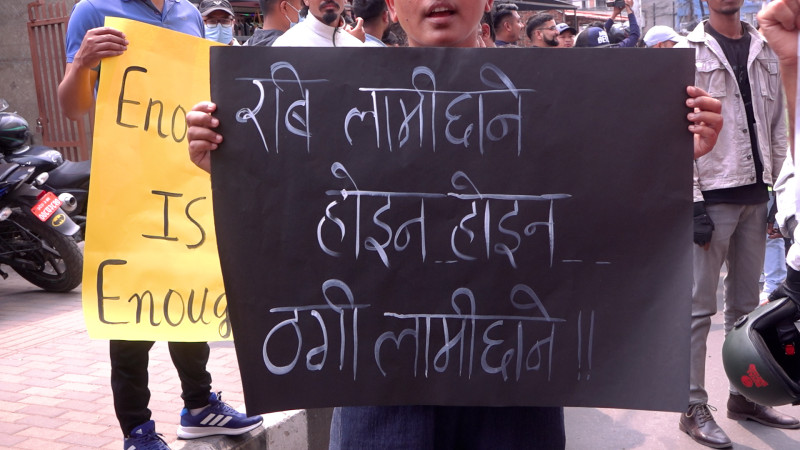 Eno
Is
Enoug
रबि लामीछाने
होइन__होइन__
ठगी लामीछाने!!